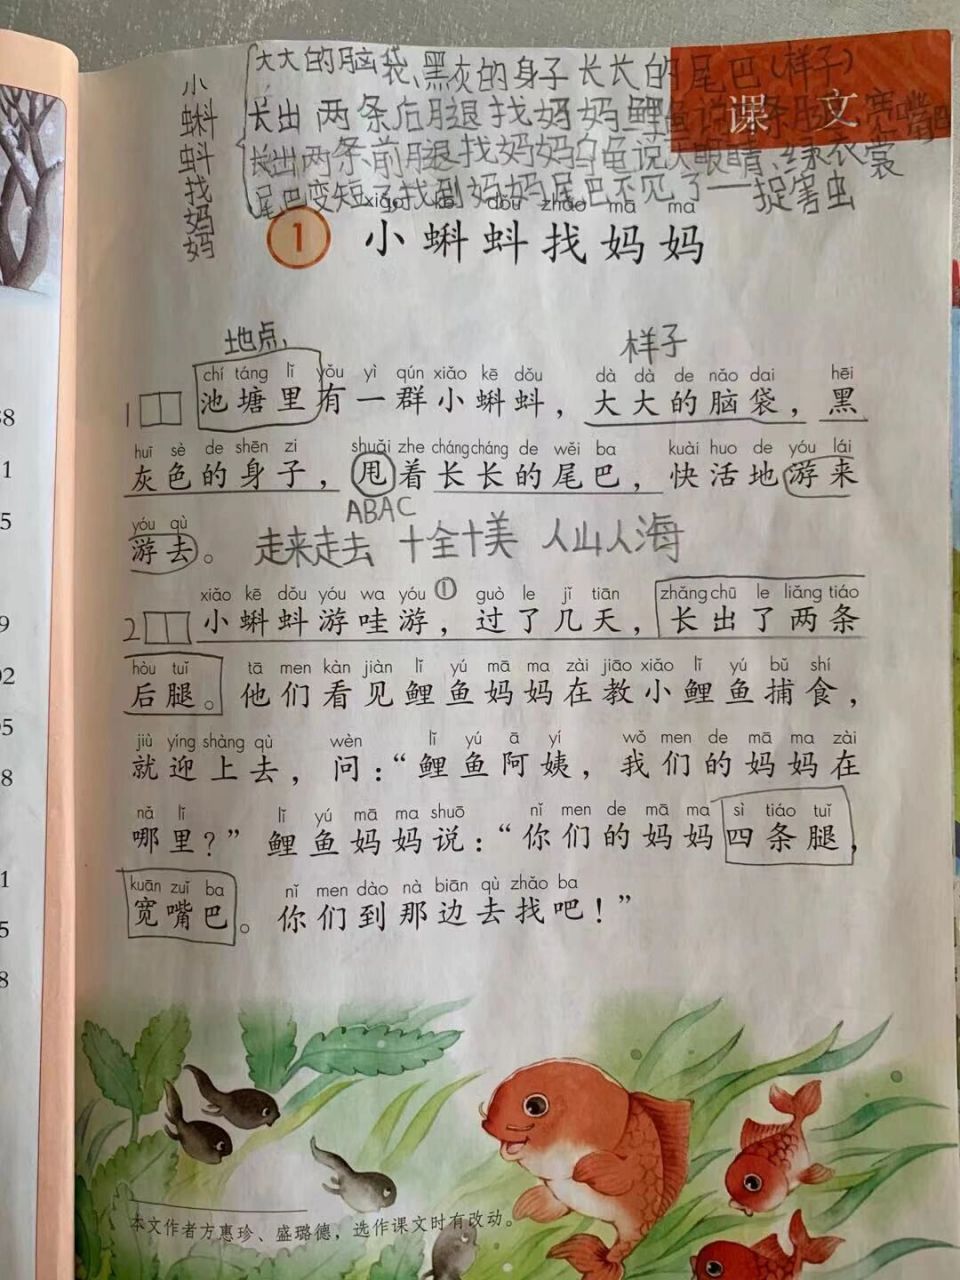 小蝌蚪找妈妈
大大的脑袋、黑灰的身子 长长的尾巴(样子)
长出两条后腿找妈妈 鲤鱼说
长出两条前腿找妈妈 乌龟说大眼睛、绿衣裳
尾巴变短了找到妈妈 尾巴不见了——捉害虫
课文
xiǎo kē dǒu zhǎo mā ma
1 小蝌蚪找妈妈
地点 样子
chí táng lǐ yǒu yì qún xiǎo kē dǒu dà dà de nǎo dai hēi
1 池塘里有一群小蝌蚪，大大的脑袋，黑
huī sè de shēn zi shuǎi zhe cháng cháng de wěi ba kuài huo de yóu lái
灰色的身子，甩着长长的尾巴，快活地游来
ABAC
yóu qù
游去。 走来走去 十全十美 人山人海
xiǎo kē dǒu yóu wa yóu ① guò le jǐ tiān zhǎng chū le liǎng tiáo
2 小蝌蚪游哇游，过了几天，长出了两条
hòu tuǐ tā men kàn jiàn lǐ yú mā ma zài jiāo xiǎo lǐ yú bǔ shí
后腿。他们看见鲤鱼妈妈在教小鲤鱼捕食，
jiù yíng shàng qù wèn lǐ yú ā yí wǒ men de mā ma zài
就迎上去，问：“鲤鱼阿姨，我们的妈妈在
nǎ lǐ lǐ yú mā ma shuō nǐ men de mā ma sì tiáo tuǐ
哪里？”鲤鱼妈妈说：“你们的妈妈四条腿，
kuān zuǐ ba nǐ men dào nà biān qù zhǎo ba
宽嘴巴。你们到那边去找吧！”
本文作者方惠珍、盛璐德，选作课文时有改动。